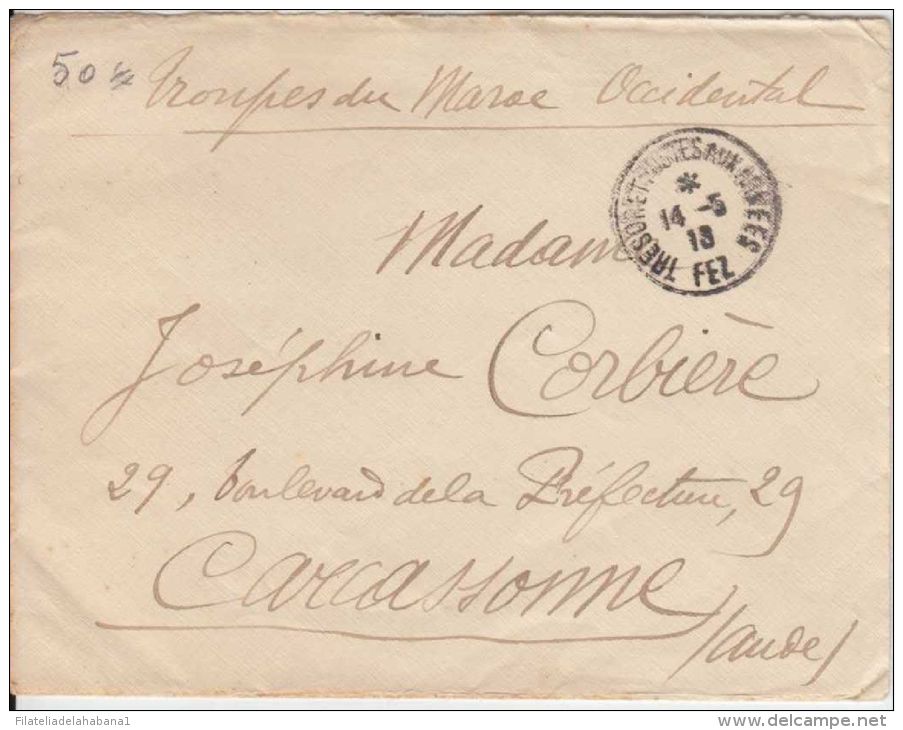 50
Troupes du Maroc Occidental
TRESOR ET POSTES AUX ARMEES
* 14 - 5
13
FEZ
Madame
Joséphine Corbière
29, boulevard de la Préfecture, 29
Carcassonne
(Aude)
Filateliadelahabana1
www.delcampe.net